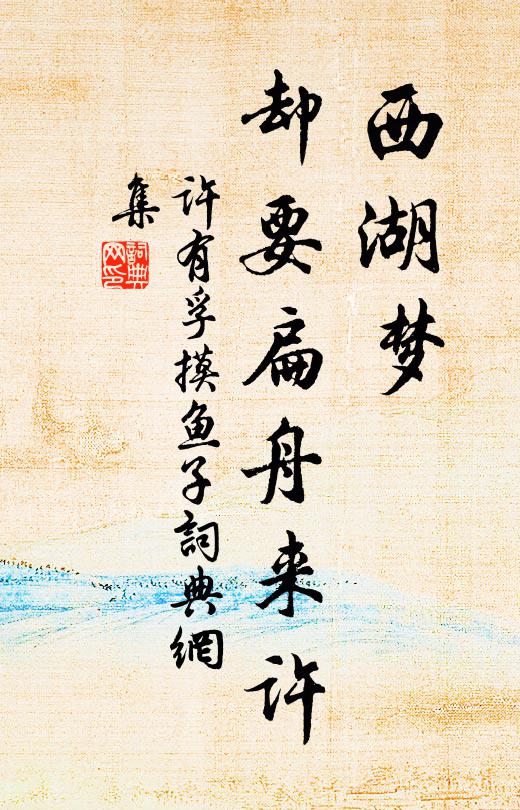 西湖梦
却要扁舟来许
许有孚摸鱼子詞典網
集
詞典
网印